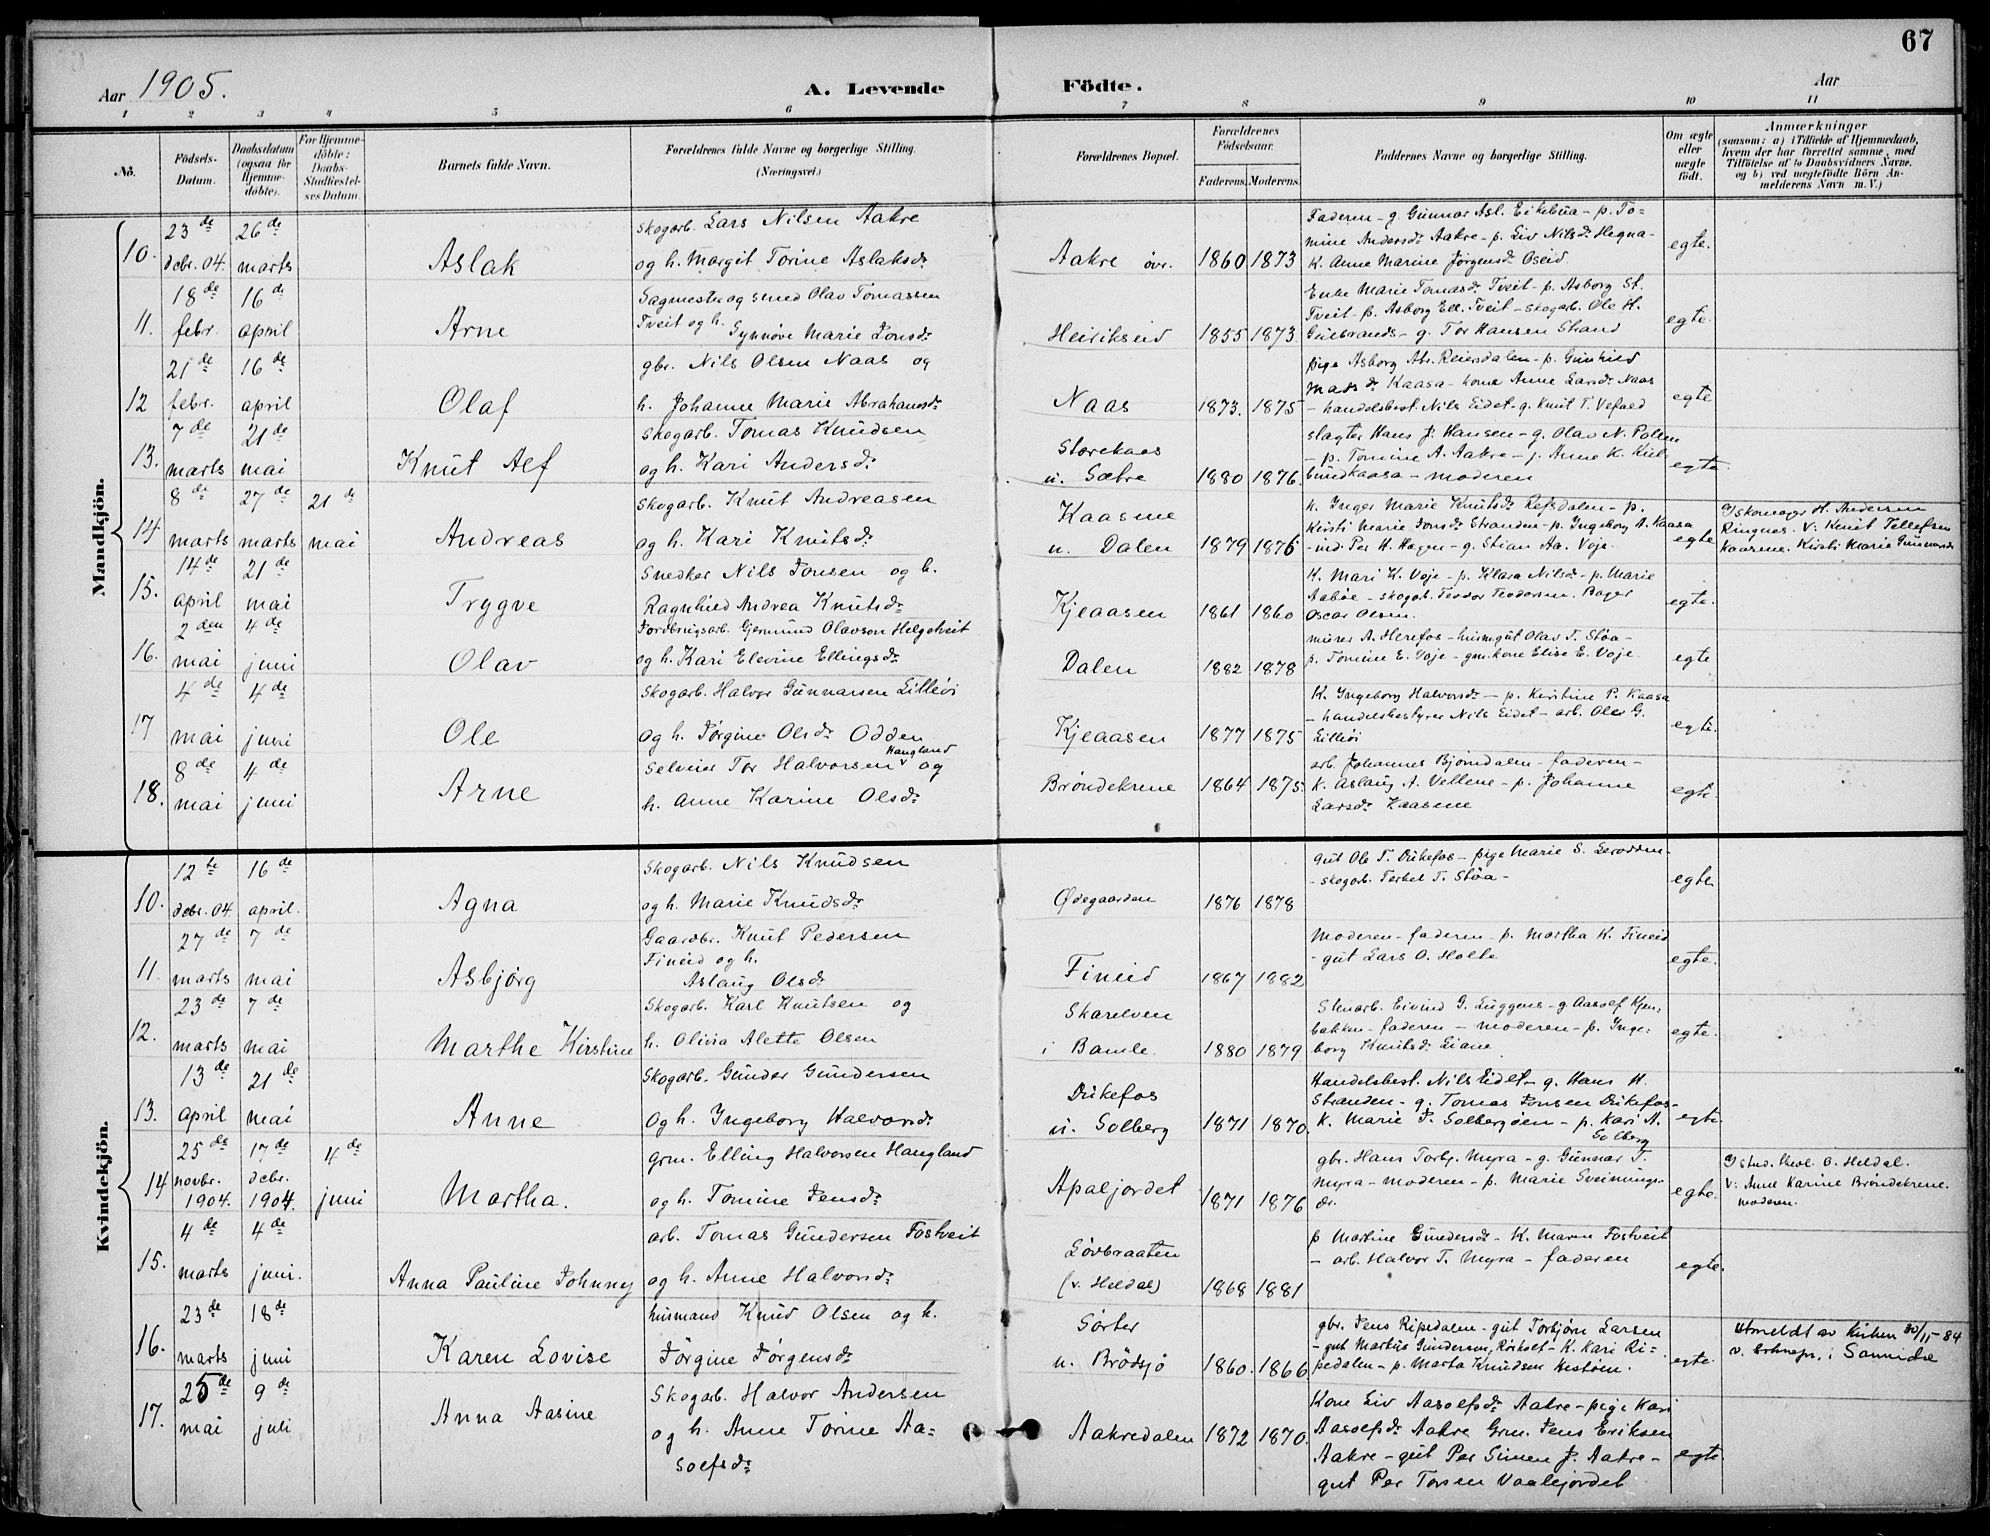 67
Aar 1905.
A. Levende Födte.
Aar
1 2 3 4 5 6 7 8 9 10 11
No.
Födsels-Datum.
Daabsdatum (ogsaa for Hjemme-döbte).
For Hjemme-döbte: Daabs-Stadfæstel-ses Datum.
Barnets fulde Navn.
Forældrenes fulde Navne og borgerlige Stilling. (Næringsvei.)
Forældrenes Bopæl.
Forældrenes Födselsaar.
Faderens. Moderens.
Faddernes Navne og borgerlige Stilling.
Om ægte eller uægte födt.
Anmærkninger
(saasom: a) i Tilfælde af Hjemmedaab, hvem der har forrettet samme, med Tilföielse af to Daabsvidners Navne. og b) ved uægtefödte Börn An-melderens Navn m. V.)
Mandkjön.
10. 23de decbr. 04. 26de marts
Aslak
Skogarb. Lars Nilsen Aakre
og h. Margit Torine Aslaksdr
Aakre övr. 1860 1873
Faderen - g. Gunnar Asl. Eikebua - p. To=
mine Andersdr Aakre - p. Liv Nilsdr Hegna-
K. Anne Marine Jørgensdr Oseid
egte.
11. 18de febr. 16de april
Arne
Sagmester og smed Olav Tomassen
Tveit og h. Synnøve Marie Jonsdr
Heirikseid 1855 1873
Enke Marie Tomasdr Tveit - p. Asborg St.
Tveit - p. Asborg Ell. Tveit - skogarb. Ole H.
Gulbrands - g. Tor Hansen Strand
egte.
12 21de febr. 16de april
Olaf
gbr. Nils Olsen Naas og
h. Johanne Marie Abrahamsdr
Naas 1873. 1875
pige Asborg Abr. Reiersdalen - p. Gunhild
Madsdr Kaasa - kone Anne Larsdr Naas
- handelsbest. Nils Eidet - g. Knut T. Vefald
egte
13. 7de marts 21de mai
Knut Alf
Skogarb. Tomas Knudsen
og h. Kari Andersdr
Storekaas
u. Sætre 1880 1876.
slagter Hans J. Hansen - g. Olav N. Pollen
- p. Tomine A. Aakre - p. Anne K. Kil-
bundkaasa - moderen
egte.
14 8de marts 27de marts 21de mai
Andreas
Skogarb. Knut Andreasen
og h. Kari Knutsdr
Kaasene
u. Dalen 1879 1876
k. Inger Marie Knutsdr Refsdalen - p.
Kirsti Marie Jonsdr Stranden - p. Ingeborg A. Kaasa
- ind. Per H. Hagen - g. Stian Aa. Voje.
egte
Skomager H. Andersen
Ringnes. V: Knut Tellefsen
Kaasene. Kirsti Marie Gunnarsdr
15. 14de april 21de mai
Trygve
Snedker Nils Jonsen og h.
Ragnhild Andrea Knutsdr
Kjeaasen 1861 1860
K. Mari K. Voje - p. Klara Nilsdr - p. Marie
Aabøe - skogarb. Teodor Teodorsen. Bager
Oscar Olsen.
egte.
16. 2den mai 4de juni
Olav
Jordbrugsarb. Gjermund Olavson Helgetveit
og h. Kari Elevine Ellingsdr
Dalen 1882 1878
murer A. Herefos - husmgut Olav T. Støa -
p. Tomine E. Voje - gm. kone Elise E. Voje.
egte
17 4de mai 4de juni
Ole
Skogarb. Halvor Gunnarsen Lilleøi
og h. Jørgine Olsdr Odden
Kjeaasen 1877 1875
K. Ingeborg Halvorsdr - p. Kirstine P. Kaasa
- handelsbestyrer Nils Eidet - arb. Ole G.
Lilleøi
egte.
18. 8de mai 4de juni
Arne
Selveier Tor Halvorsen Haugland og
h. Anne Karine Olsdr
Brøndekrene 1864 1875
arb. Johannes Bjørndalen - faderen -
K. Aslaug A. Vellene - p. Johanne
Larsdr Kaasene
egte.
Kvindekjön.
10. 12te decbr. 04. 16de april.
Agna
Skogarb. Nils Knudsen
og h. Marie Knudsdr
Ødegaarden 1876 1878
gut Ole T. Dukefos - pige Marie S. Lerodden -
- skogarb. Terkel T. Støa -
egte
11. 27de marts 7de mai
Asbjørg
Gaardbr. Knut Pedersen
Fineid og h.
Aslaug Olsdr
Fineid 1867 1882
Moderen - faderen - p. Martha K. Fineid
- gut Lars O. Holte
egte.
12. 23de marts 7de mai
Marthe Kirstine
Skogarb. Karl Knutsen og
h. Olivia Alette Olsen
Skarelven
i Bamle. 1880 1879
Stenarb. Eivind G. Luggens - g Aasolf Kjen-
bakken - faderen - moderen - p. Inge-
borg Knutsdr Liane
egte.
13. 13de april 21de mai
Anne
Skogarb. Gunder Gundersen
og h. Ingeborg Halvorsdr
Dukefos
u. Solberg 1871 1870.
Handelsbest. Nils Eidet - g. Hans H.
Stranden - g. Tomas Jonsen Dukefos -
K. Marie J. Solbergøen - p. Kari A.
Solberg
egte
14 25de novbr. 1904. 17de decbr. 1904. 4de juni
Martha.
Grm. Elling Halvorsen Haugland
og h. Tomine Jensdr
Apaljordet 1871 1876
gbr. Hans Torbj. Myra - g. Gunnar T.
Myra - moderen - p. Marie Sveinungs-
dr.
egte.
stud. theol. O. Heldal.
V: Anne Karine Brøndekrene.
moderen.
15. 4de marts 4de juni.
Anna Pauline Johnny
arb. Tomas Gundersen Fostveit
og h. Anne Halvorsdr
Løvbraaten
(v. Heldal) 1868 1881
p Martine Gundersdr - K. Maren Fostveit
- arb. Halvor T. Myra - faderen
egte.
16. 23de marts 18de juni
Karen Lovise
husmand Knud Olsen og h.
Jørgine Jørgensdr
Sørter
u. Brødsjø 1860. 1866
gbr. Jens Ripedalen - gut Torbjørn Larsen
- gut Martius Gundersen, Rørholt - K. Kari Ri=
pedalen - p. Marta Knudsen Hestøen.
egte.
Utmeldt av Kirken 30/11-84
v. Soknepr. i Sannidal
17. 25de mai 9de juli
Anna Aasine
Skogarb. Halvor Andersen
og h. Anne Torine Aa=
solfsdr
Aakredalen 1872 1870.
Kone Liv Aasolfsdr Aakre - pige Kari
Aasolfsdr Aakre Grm. Jens Eriksen
Aakre - gut Per Simen J. Aakre -
gut Per Torsen Vaalejordet
egte.